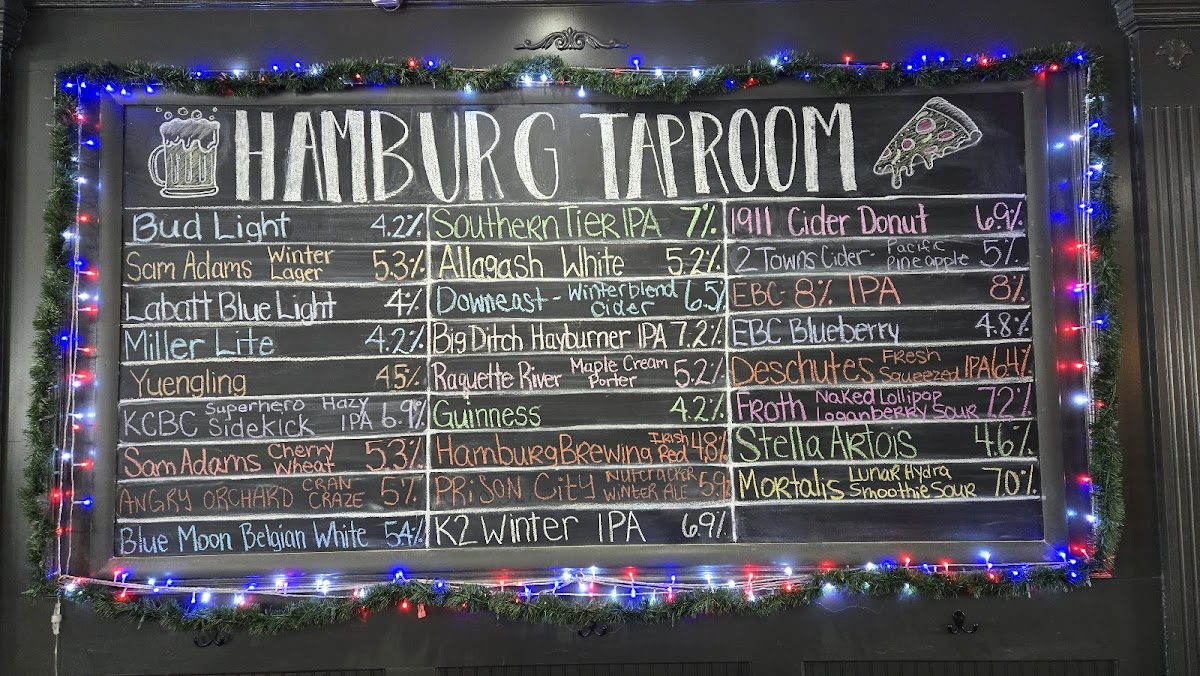 HAMBURG TAPROOM
Bud Light 4.2%
Sam Adams Winter Lager 5.3%
Labatt Blue Light 4%
Miller Lite 4.2%
Yuengling 4.5%
KCBC Superhero Sidekick Hazy IPA 6.9%
Sam Adams Cherry Wheat 5.3%
ANGRY ORCHARD CRAN CRAZE 5%
Blue Moon Belgian White 5.4%
Southern Tier IPA 7%
Allagash White 5.2%
Downeast - Winterblend Cider 6.5%
Big Ditch Hayburner IPA 7.2%
Raquette River Maple Cream Porter 5.2%
Guinness 4.2%
Hamburg Brewing Irish Red 4.8%
PRISON CITY NUTCRACKER WINTER ALE 5.9%
K2 Winter IPA 6.9%
1911 Cider Donut 6.9%
2 Towns Cider - Pacific Pineapple 5%
EBC- 8% IPA 8%
EBC Blueberry 4.8%
Deschutes Fresh Squeezed IPA 6.4%
Froth Naked Lollipop Loganberry Sour 7.2%
Stella Artois 4.6%
Mortalis Lunar Hydra Smoothie Sour 7.0%